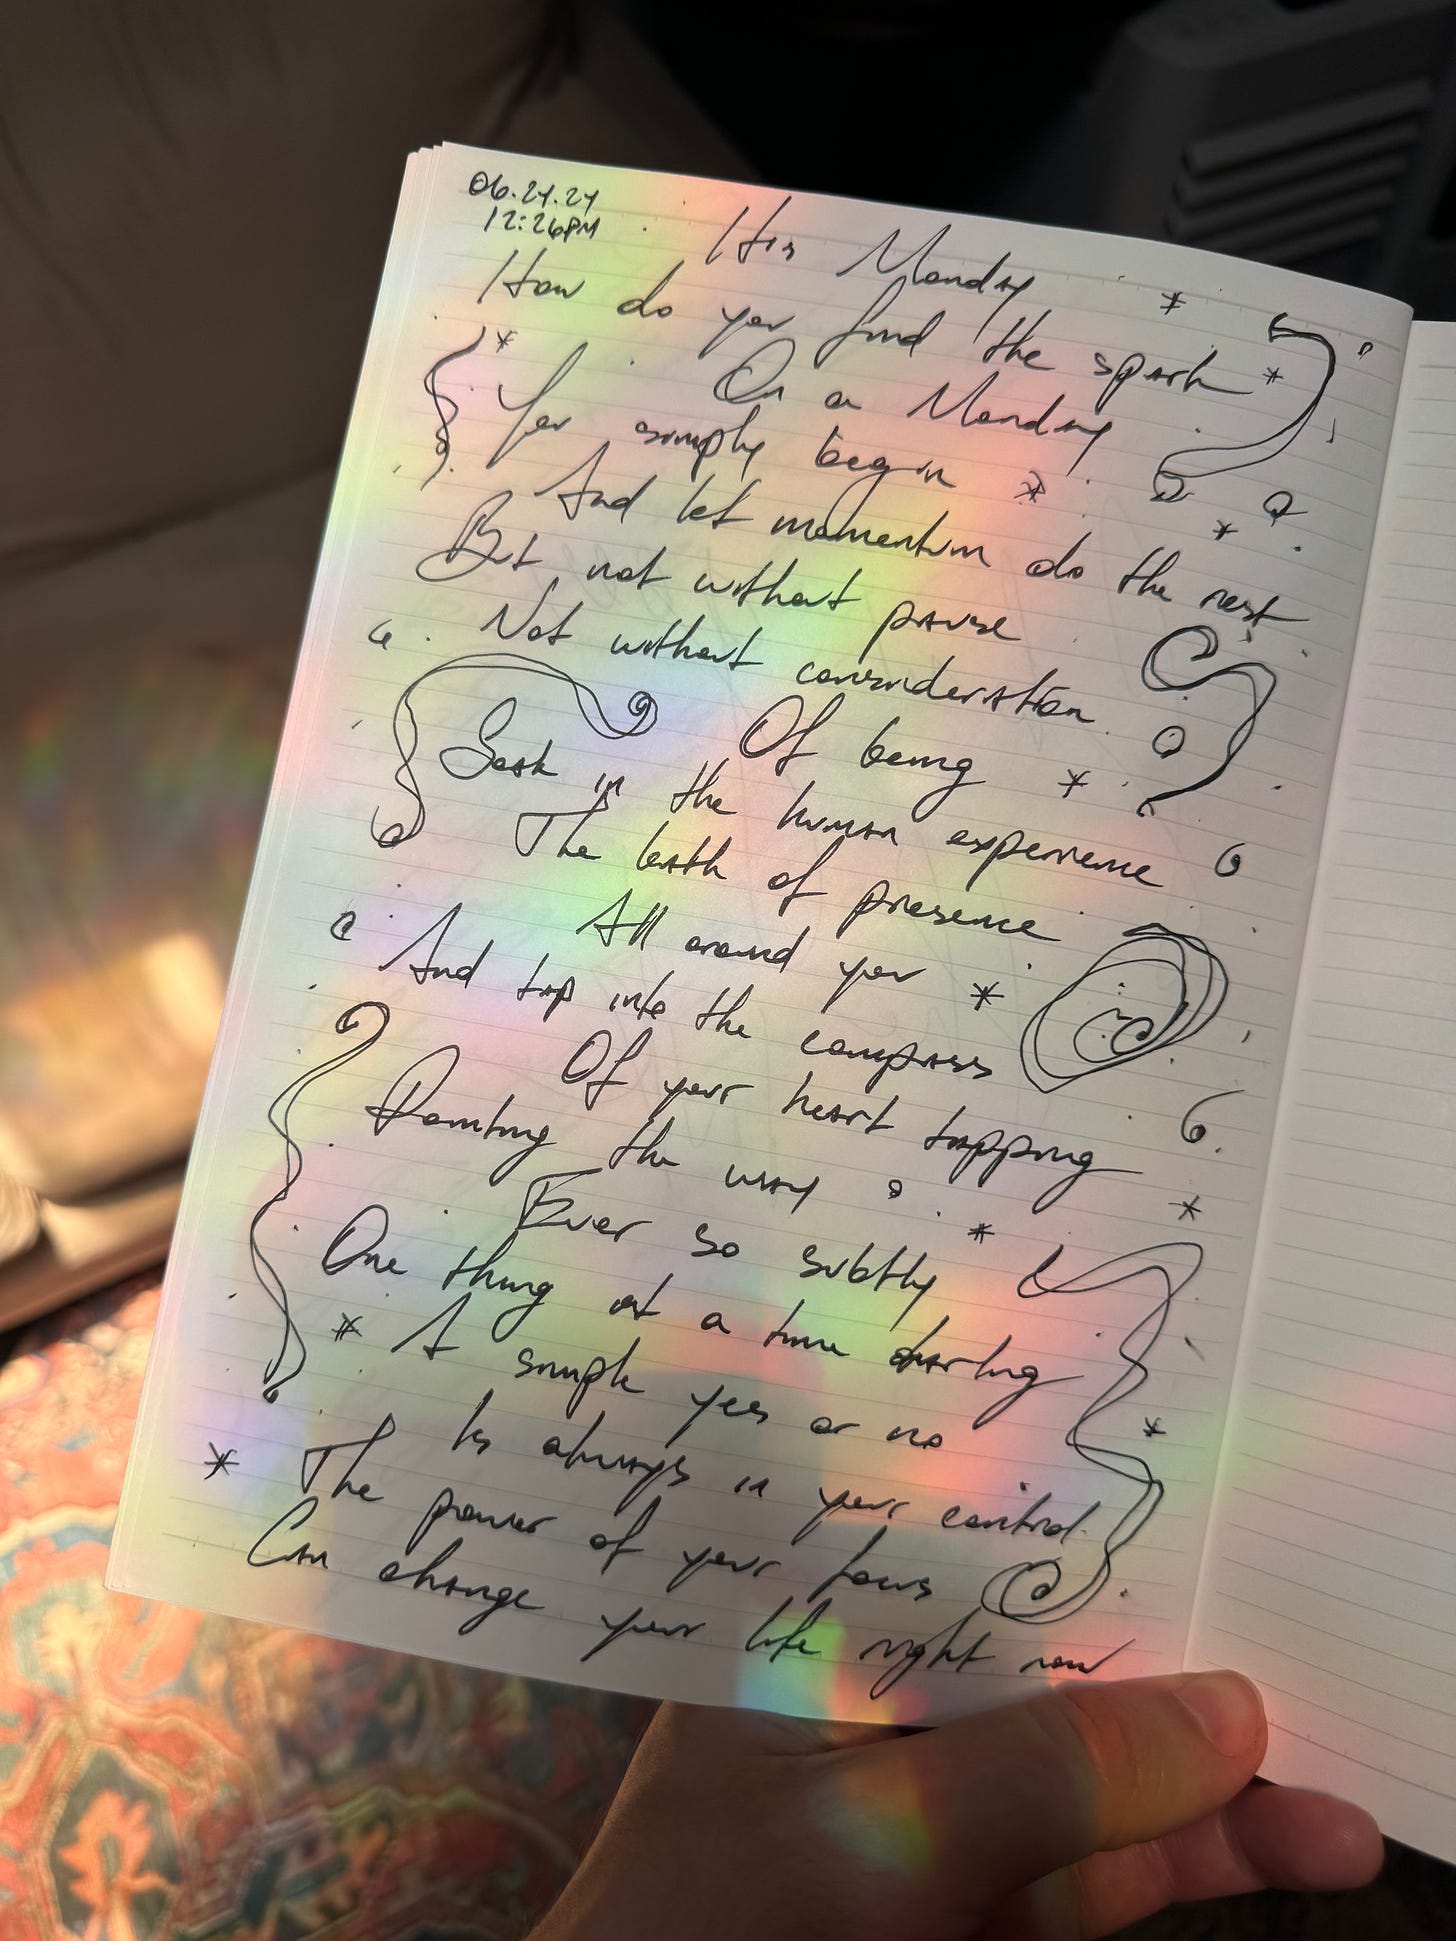 06.24.24
12:26PM
His Monday
How do you find the spark
On a Monday
You simply begin
And let momentum do the rest
But not without pause
Not without consideration
Of being
Soak in the human experience
The bath of presence
All around you
And tap into the compass
Of your heart tapping
Pointing the way
Ever so subtly
One thing at a time darling
A simple yes or no
Is always in your control
The power of your focus
Can change your life right now